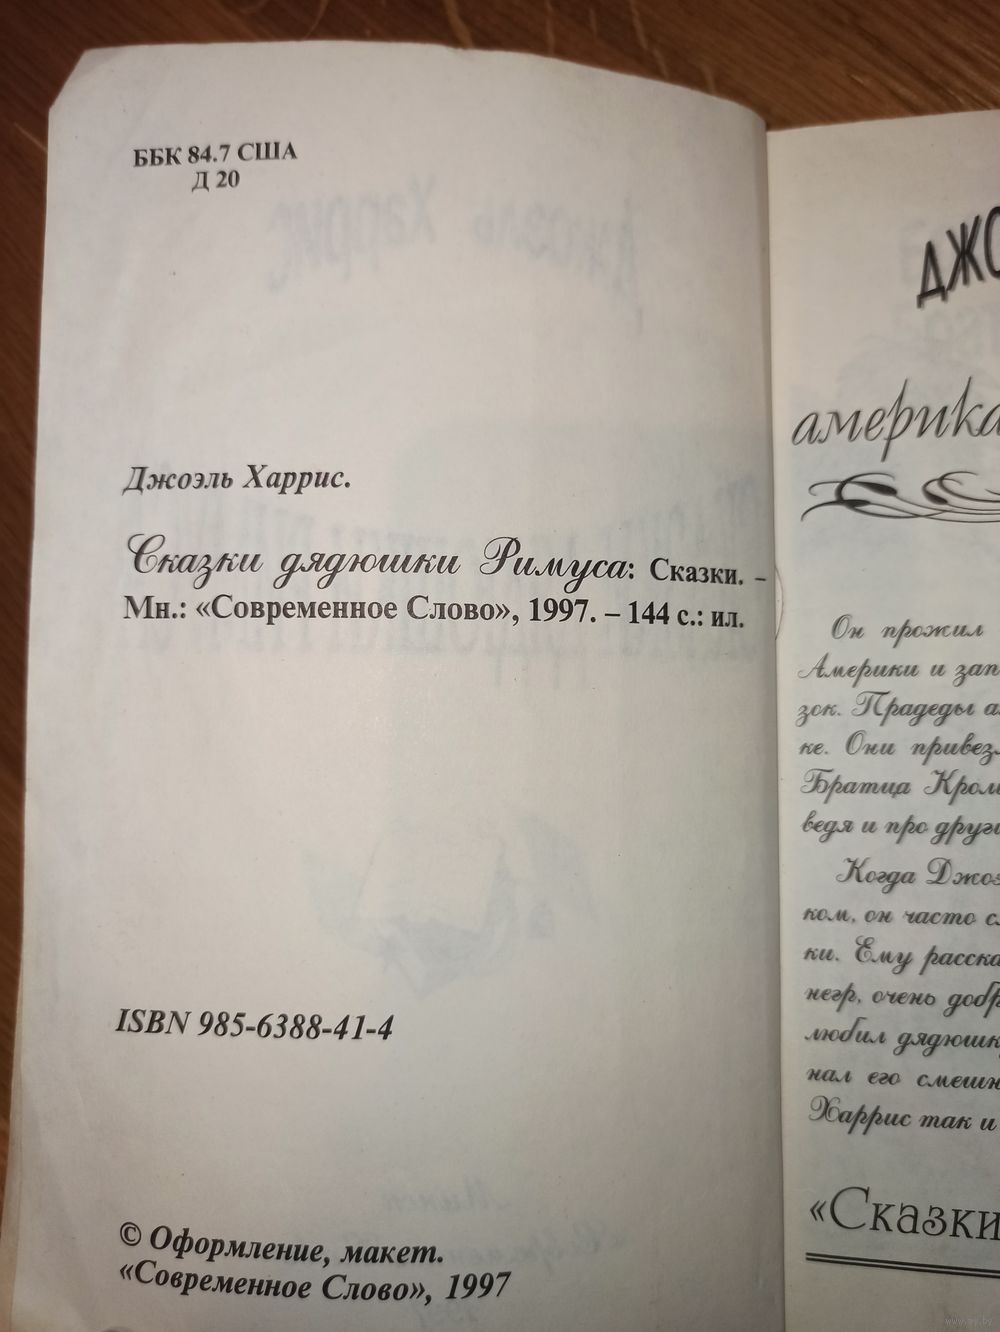 ББК 84.7 США
Д 20
Джоэль Харрис.
Сказки дядюшки Римуса: Сказки. –
Мн.: «Современное Слово», 1997. – 144 с.: ил.
ISBN 985-6388-41-4
© Оформление, макет.
«Современное Слово», 1997
ДЖО
америка
Он прожил
Америки и зап
зок. Прадеды а
ке. Они привез
Братца Кром
ведя и про други
Когда Джоэ
ком, он часто с
ки. Ему расска
негр, очень добр
любил дядюшк
нал его смешн
Харрис так и
«Сказки